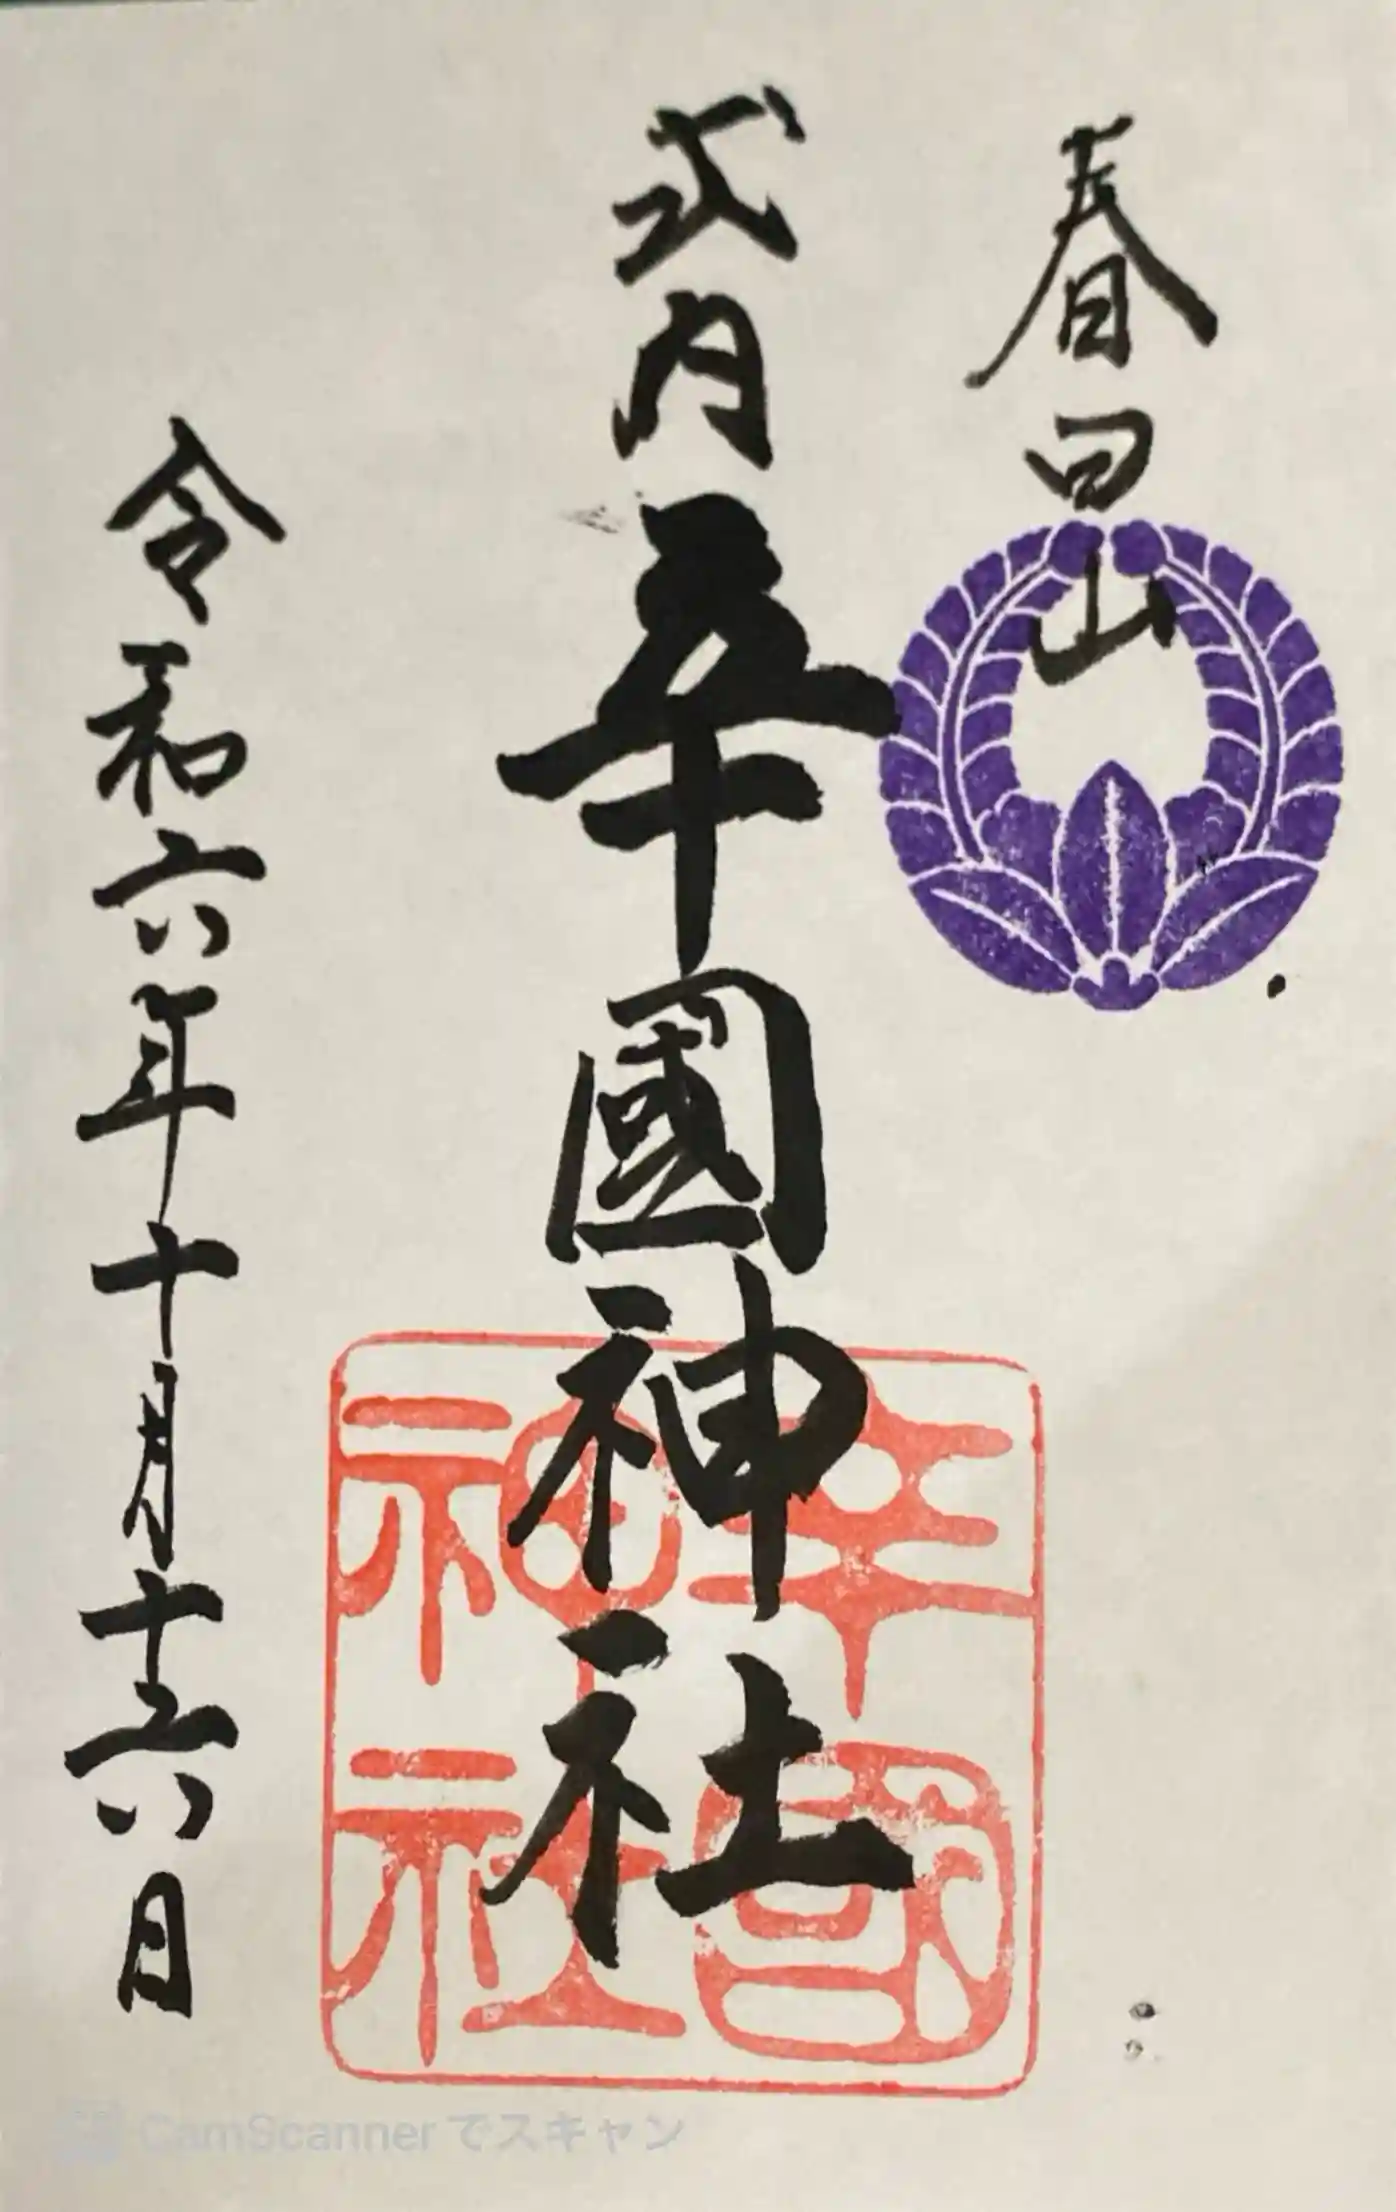 春日山
式内 辛國神社
令和六年十月十六日
辛國
神社
CamScanner でスキャン